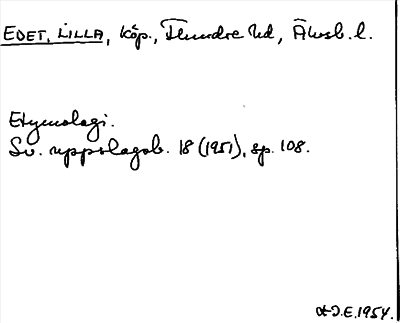 EDET, LILLA, köp., Flundre hd, Älvsb. l.
Etymologi.
Sv. uppslagsb. 18 (1951), sp. 108.
J.E. 1954.